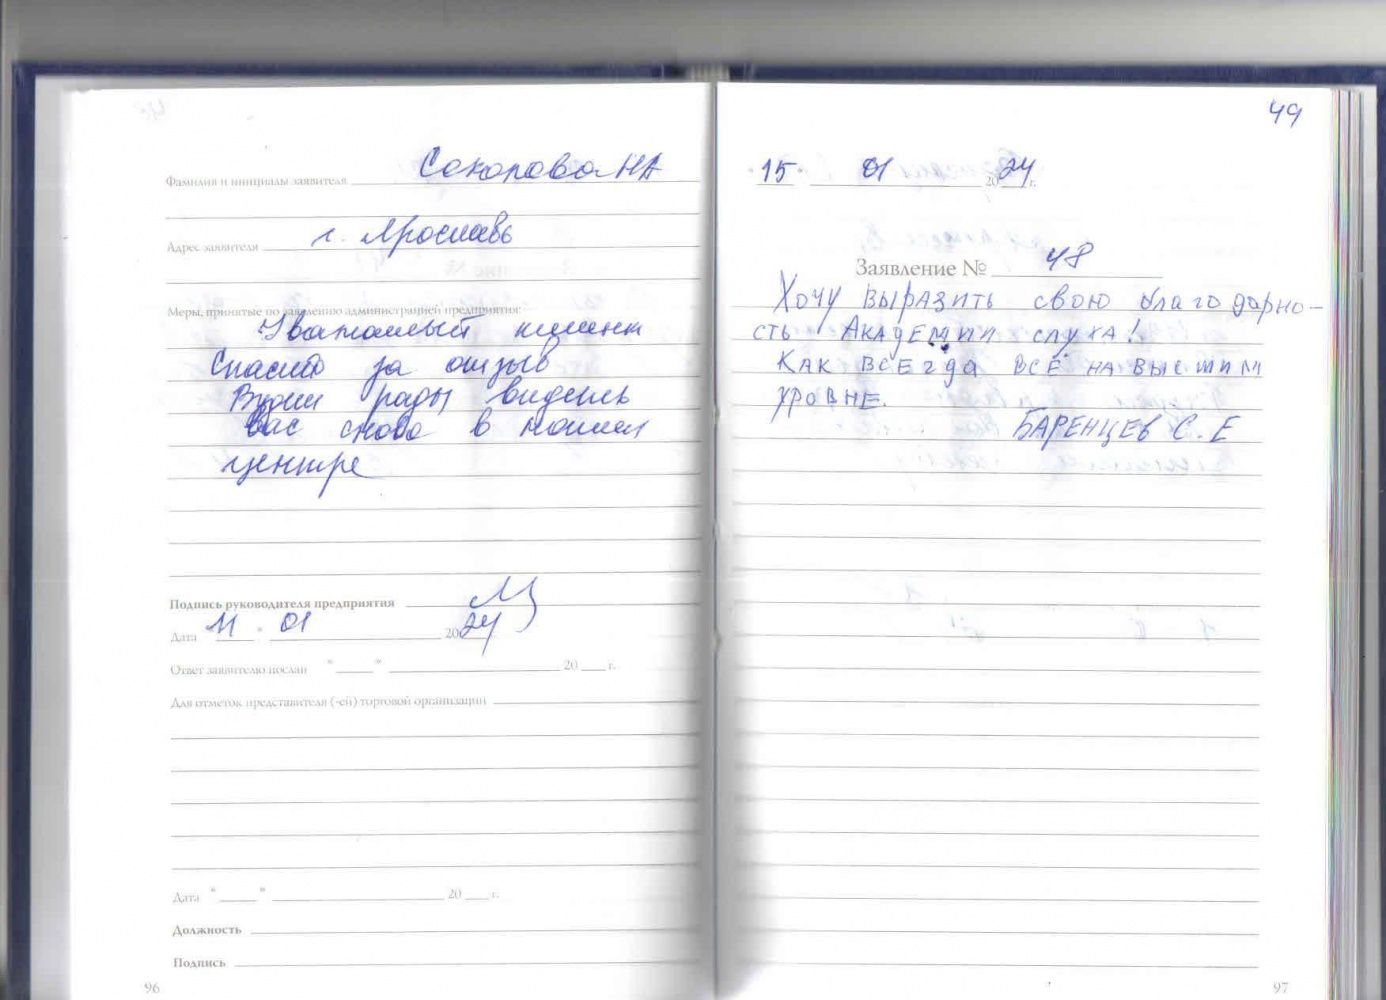 Фамилия и инициалы заявителя Соколова НА
Адрес заявителя г. Ярославь
Меры, принятые по заявлению администрацией предприятия:
Уважаемый клиент
Спасибо за отзыв
Будем рады видеть
Вас снова в нашем
центре
Подпись руководителя предприятия
Дата "11" 01 2024
Ответ заявителю послан "___" ___ 20 ___ г.
Для отметок представителя (-ей) торговой организации
Дата "___" ___ 20 ___ г.
Должность
Подпись
96
49
"15" 01 2024 г.
Заявление № 48
Хочу выразить свою благодарно-
сть Академии слуха!
Как всегда всё на высшем
уровне.
БАРЕНЦЕВ С.Е
97